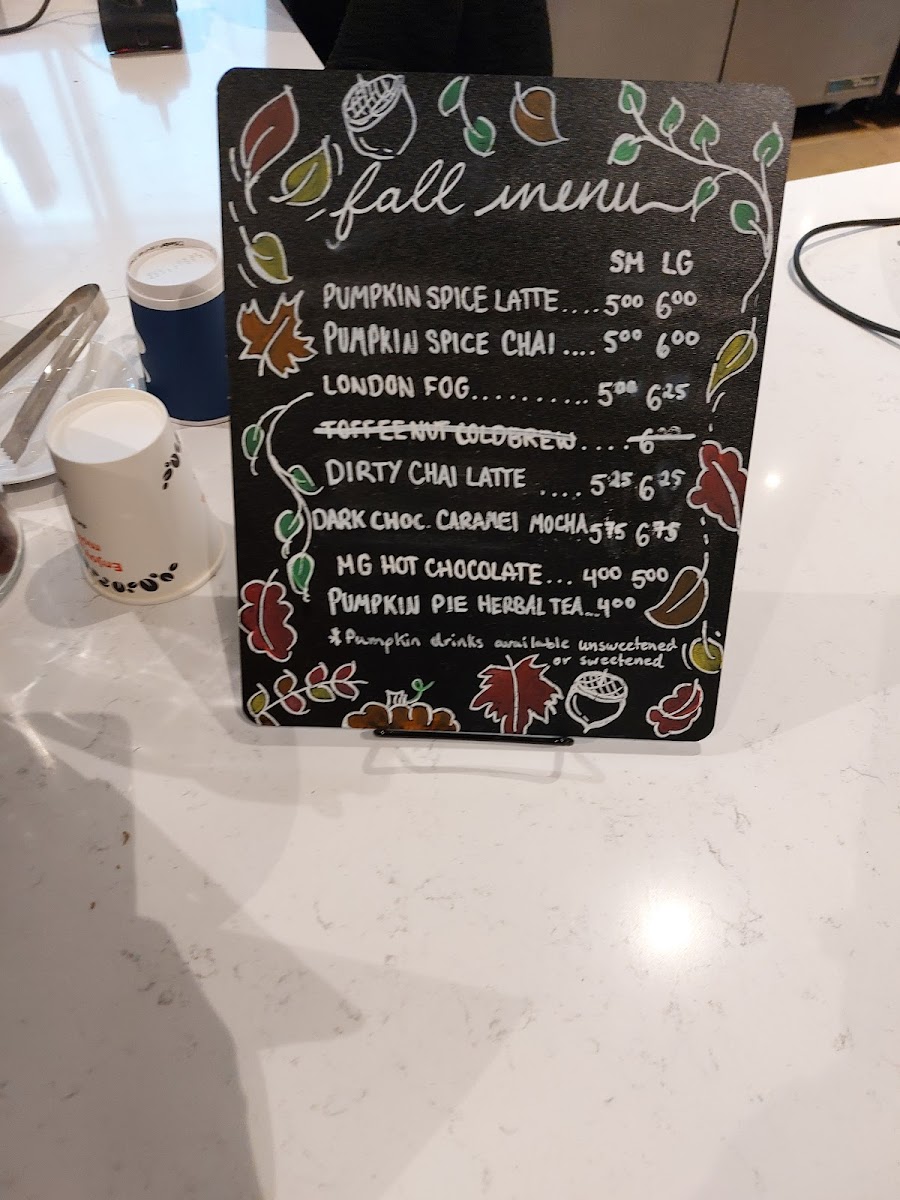 fall menu
SM LG
PUMPKIN SPICE LATTE....5⁰⁰ 6⁰⁰
PUMPKIN SPICE CHAI.... 5⁰⁰ 6⁰⁰
LONDON FOG.......... 5⁰⁰ 6²⁵
TOFFEENUT COLDBREW....6
DIRTY CHAI LATTE .... 5²⁵ 6²⁵
DARK CHOC. CARAMEL MOCHA 5⁷⁵ 6⁷⁵
MG HOT CHOCOLATE... 4⁰⁰ 5⁰⁰
PUMPKIN PIE HERBAL TEA...4⁰⁰
*Pumpkin drinks available unsweetened
or sweetened
Enjoy